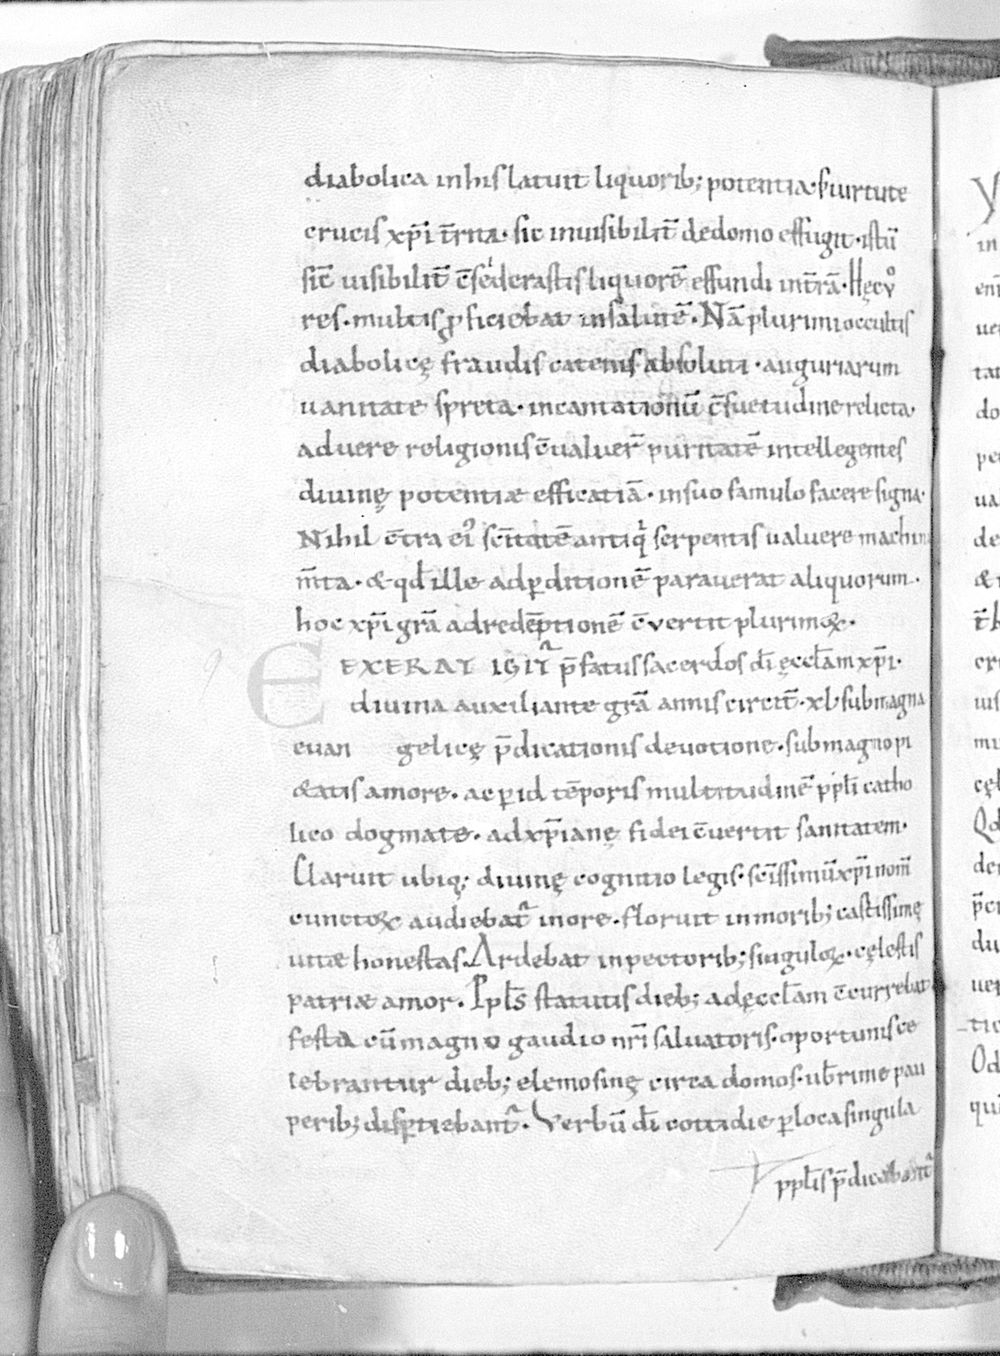 diabolica in his latuit liquorib; potentia · si uirtute
crucis xp̄i t̄rita · sic inuisibilit̄ de domo effugit · istū
sic̄ uisibilit̄ c̄siderastis liquorē effundi int̄rā · Hęc uͦ
res · multis ꝓficiebat in salutē · Nā plurimi occultis
diabolicę fraudis catenis absoluti · auguriarum
uanitate spreta · incantationū c̄suetudine relicta
ad uere religionis c̄ualuer̄ puritatē intellegentes
diuinę potentiæ efficatiā · in suo famulo facere signa ·
Nihil c̄tra ei᾽ sc̄itatē antiqͥ serpentis ualuere machin
m̄ta · & qđ ille ad ꝑditionē parauerat aliquorum ·
hoc xp̄i grā ad redēptionē c̄uertit plurimoꝝ ·
EXERAT IGIT᷑ p̄fatus sacerdos dī ęccłam xp̄i ·
diuina auxiliante grā annis circit̄ · xl · sub magna
euangelicę p̄dicationis deuotione · sub magno pi
&atis amore · ac ꝑ id tēporis multitudinē ppłi catho
lico dogmate · ad xp̄ianę fidei c̄uertit sanitatem ·
Claruit ubiq; diuinę cognitio legis · sc̄issimū xp̄i nom̄
cunctoꝝ audiebat᷑ in ore · floruit in morib; castissimę
uitæ honestas · Ardebat in pectorib; singuloꝝ · cęlestis
patriæ amor · Ppłs statutis dieb; ad ęccłam c̄currebat
festa cū magno gaudio nr̄i saluatoris · oportunis ce
lebrantur dieb; elemosinę circa domos · ub̄rime pau
perib; disꝑtiebant᷑ · Verbū dī cottidie ꝑ loca singula
ppłis p̄dicabat᷑